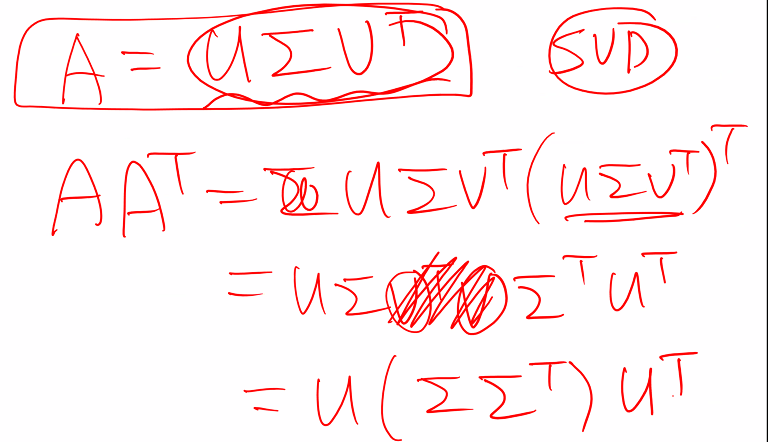 A = UΣVᵀ SVD
AAᵀ = UΣVᵀ(UΣVᵀ)ᵀ
= UΣ ΣᵀUᵀ
= U(ΣΣᵀ)Uᵀ